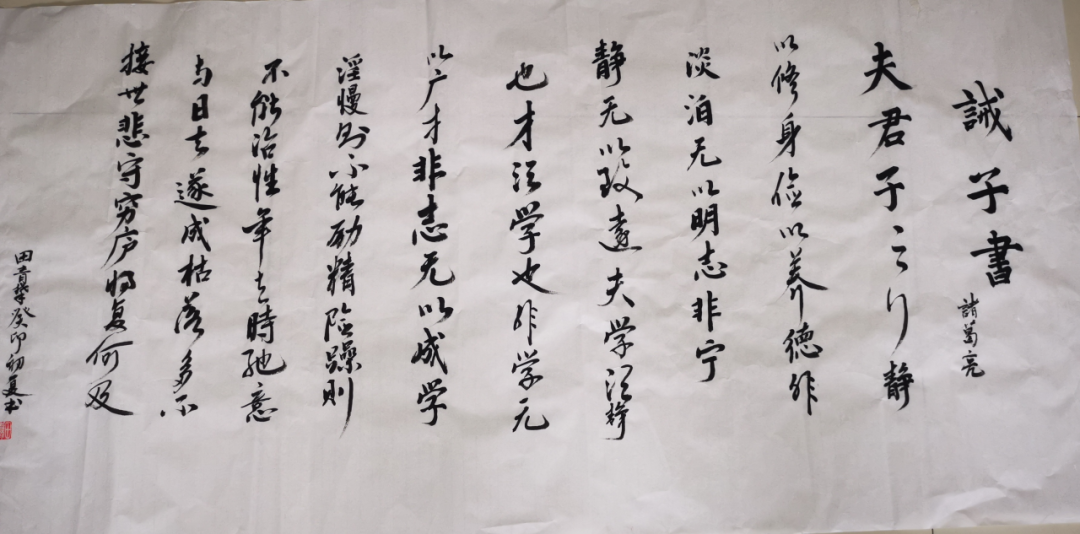 誡子書
諸葛亮
夫君子之行静
以修身俭以养德非
淡泊无以明志非宁
静无以致遠夫学须静
也才须学也非学无
以广才非志无以成学
淫慢则不能励精险躁則
不能治性年与時驰意
与日去遂成枯落多不
接世悲守穷庐将复何及
田青 癸卯初夏书